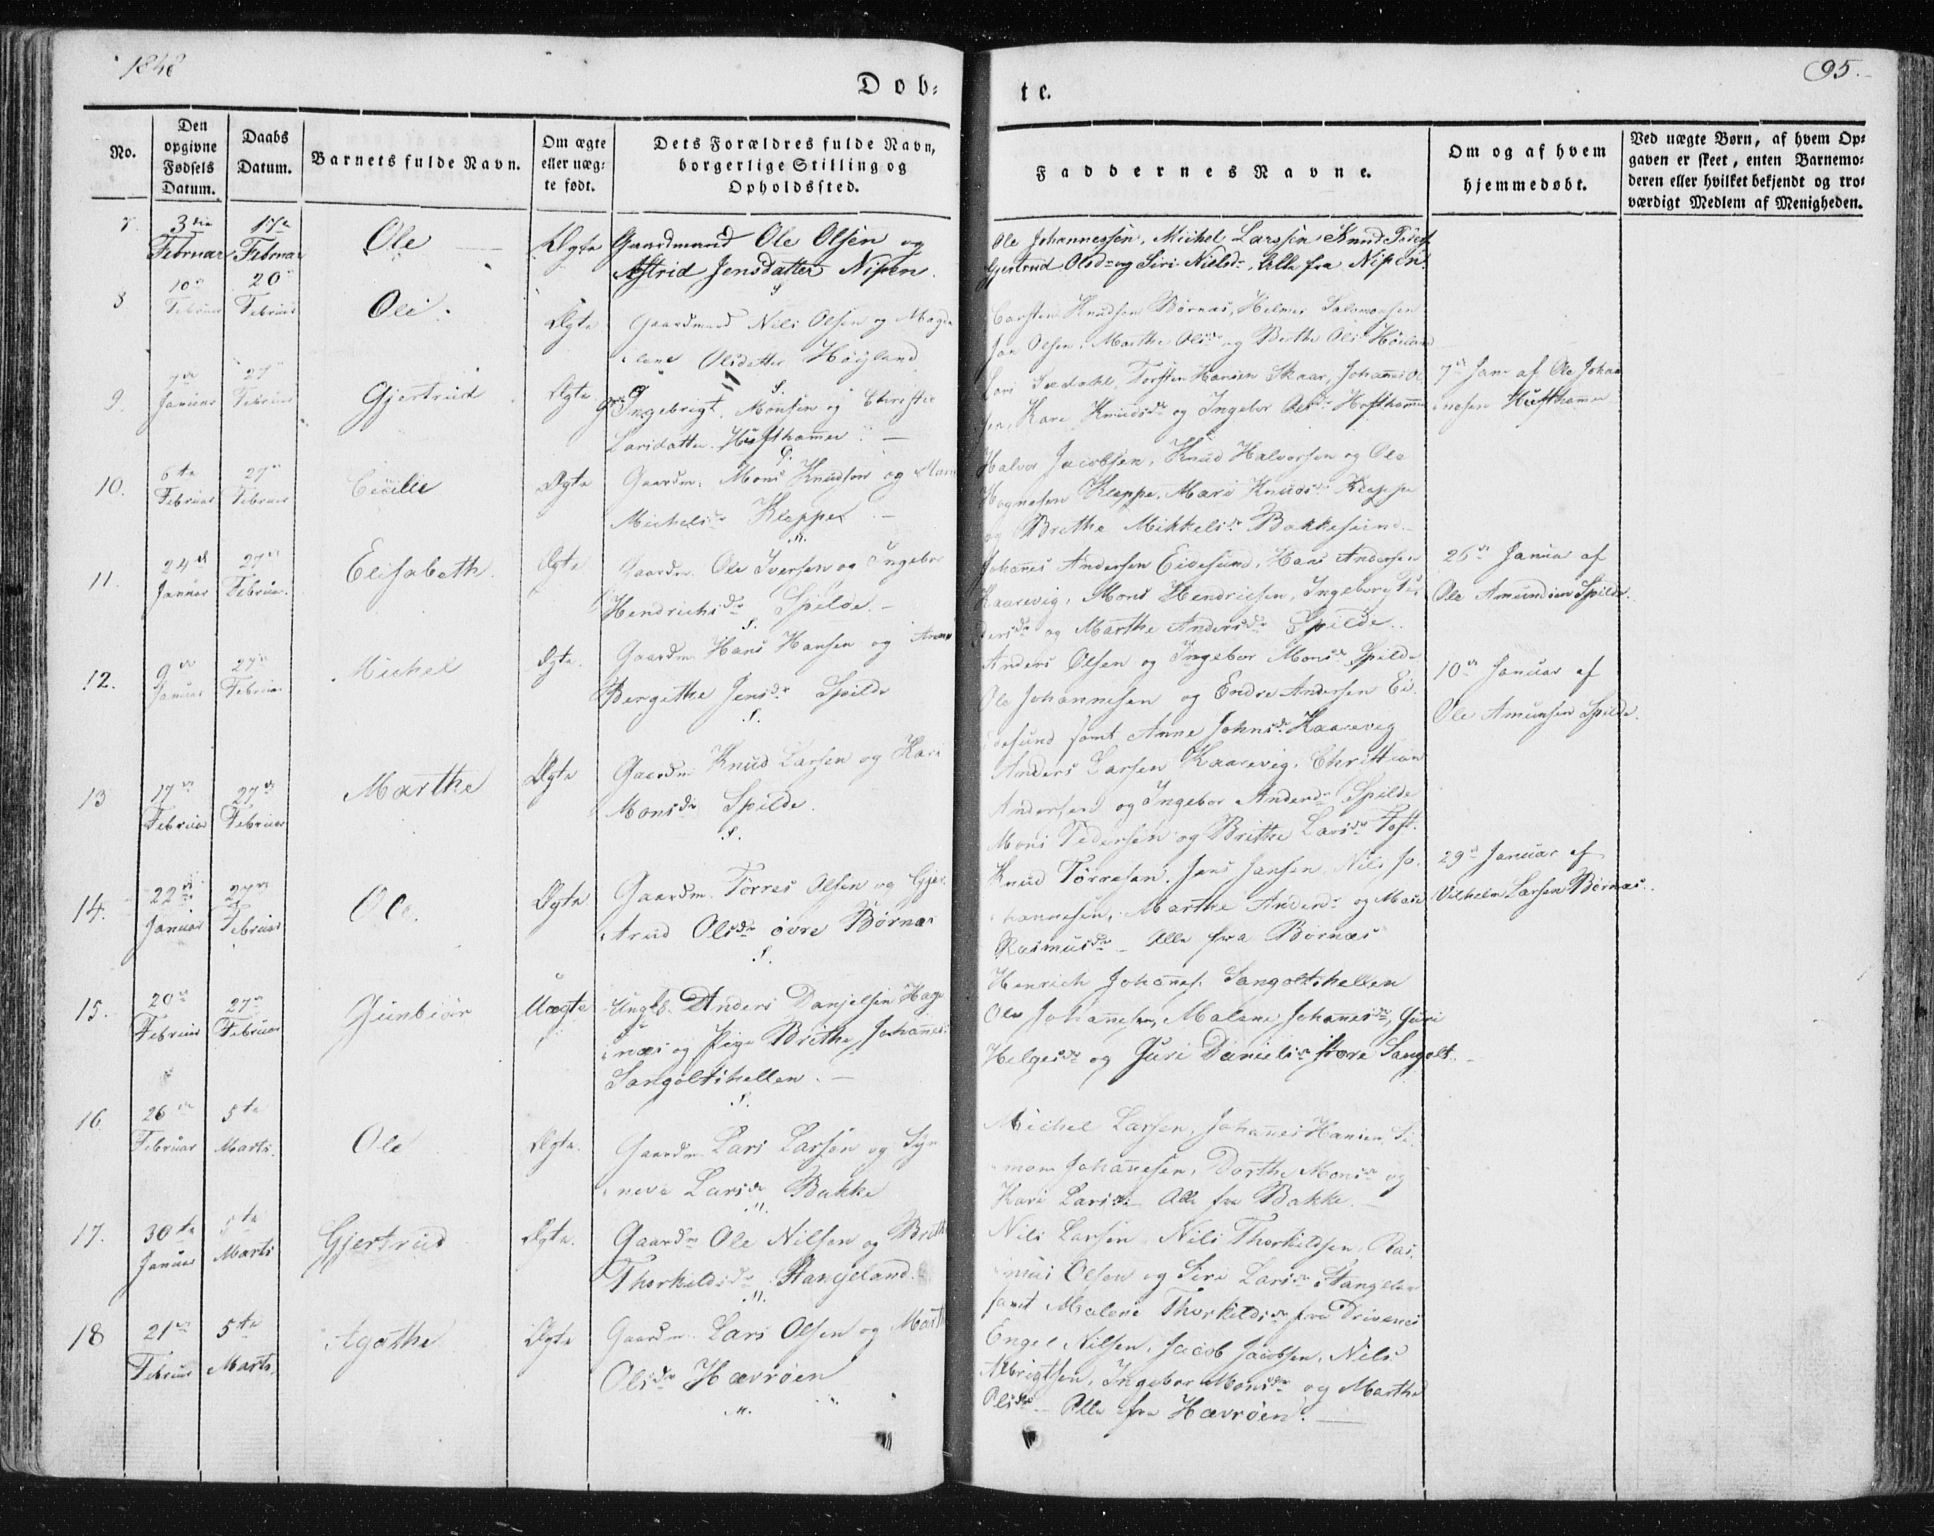 1848
Døb-
te.
95.
No.
Den opgivne Fødsels Datum.
Daabs Datum.
Barnets fulde Navn.
Om ægte eller uægte født.
Dets Forældres fulde Navn, borgerlige Stilling og Opholdssted.
Faddernes Navne.
Om og af hvem hjemmedøbt.
Ved uægte Børn, af hvem Opgaven er skeet, enten Barnemoderen eller hvilket bekjendt og troværdigt Medlem af Menigheden.
7.
3die Februar
17de Februar
Ole
Ægte
Gaardmand Ole Olsen og
Astrid Jensdatter Nipen.
Ole Johannessen, Michel Larssen Knud
Gjertrud Olsdr og Siri Nielsdr, Alle fra Nipen.
8
10de Februar
20 Februar
Oli
Ægte
Gaardmand Nils Olsen og Magda-
lene Olsdatter Høyland
Carsten Knudsen Børnæs, Helmer Salomonsen
Jon Olsen, Marthe Olsdr og Berthe Olsdr
9.
Januar
27 Februar
Gjertrud
Ægte
Ingebrigt Monsen og Christie
Larsdatter Hufthamer
Lars Torsten Hansen Skaar, Johannes Ol-
sen, Kari Knudsdr og Ingebor Olsdr Hufthamer
7de Janr af Ole Johan-
nesen Hufthamer
10.
6te Februar
27 Februar
Cicilie
Ægte
Gaardm. Mons Knudsen og
Michelsdr Kleppe
Halvor Jacobsen, Knud Halvorsen og Ole
Hognesen Kleppe, Mari Knudsdr Kleppe
og Brithe Mikkelsdr Bakkesund
11.
24de Januar
27de Februar
Elisabeth
Ægte
Gaardm. Ole Iversen og Ingebor
Hendrichsdr Spilde.
Johanes Andersen Eidesund, Hans Andersen
Kaarevig, Mons Hendriksen, Ingeborg
og Marthe Andersdr Spilde.
26de Januar af
Ole Amundsen Spilde.
12.
9de Januar
27de Februar
Michel
Ægte
Gaardm. Hans Hansen og Anne
Bergithe Jensdr Spilde
Anders Olsen og Ingebor Monsdr Spilde
Ole Johannesen og Endre Andersen Ei-
desund samt Anne Johnsdr Kaarevig
10de Januar af
Ole Amunsen Spilde.
13
17de Februar
27de Februar
Marthe
Ægte
Gaardm. Knud Larsen og Kari
Monsdr Spilde.
Anders Larsen Kaarevig, Christian
Andersen og Ingebor Andersdr Spilde
Mons Pedersen og Brithe Larsdr Toft.
14.
22de Januar
27de Februar
Ole.
Ægte
Gaardm. Tørres Olsen og Gjer-
trud Olsdr øvre Børnæs
Knud Tørresen, Jens Jansen, Nils Jo-
hannesen, Marthe Andersdr og
Rasmusdr Alle fra Børnæs
29de Januar af
Vilhelm Larsen Børnæs.
15.
20de Februar
27de Februar
Gunbiør
Uægte
Ungk. Anders Danjelsen Hage-
næs og Pige Brithe Johannes-
Sangoltshellen.
Henrich Johanes. Sangoltshellen
Ole Johanesen, Malene Johanesdr, Guri
Helgesdr og Guri Danielsdr store Sangolt.
16
26de Februar
5te Marts.
Ole
Ægte.
Gaardm. Lars Larsen og Syn-
neve Larsdr Bakke
Michel Larsen, Johanes Hansen, Si-
mon Johanesen, Dorthe Monsdr og
Kari Larsdr Alle fra Bakke.
17.
30te Januar
5te Marts
Gjertrud
Ægte.
Gaardm Ole Nilsen og Brithe
Thorkildsdr Stangeland.
Nils Larsen, Nils Thorkildsen, Ras-
mus Olsen og Siri Larsdr Stangeland
samt Malene Thorkildsdr fra Drivenes
18
21de Februar
5te Marts.
Agathe
Ægte
Gaardm. Lars Olsen og Marthe
Olsdr Hævrøen
Engel Nilsen, Jacob Jacobsen, Nils
Albrigtsen, Ingebor Monsdr og Marthe
Olsdr Alle fra Hævrøen.